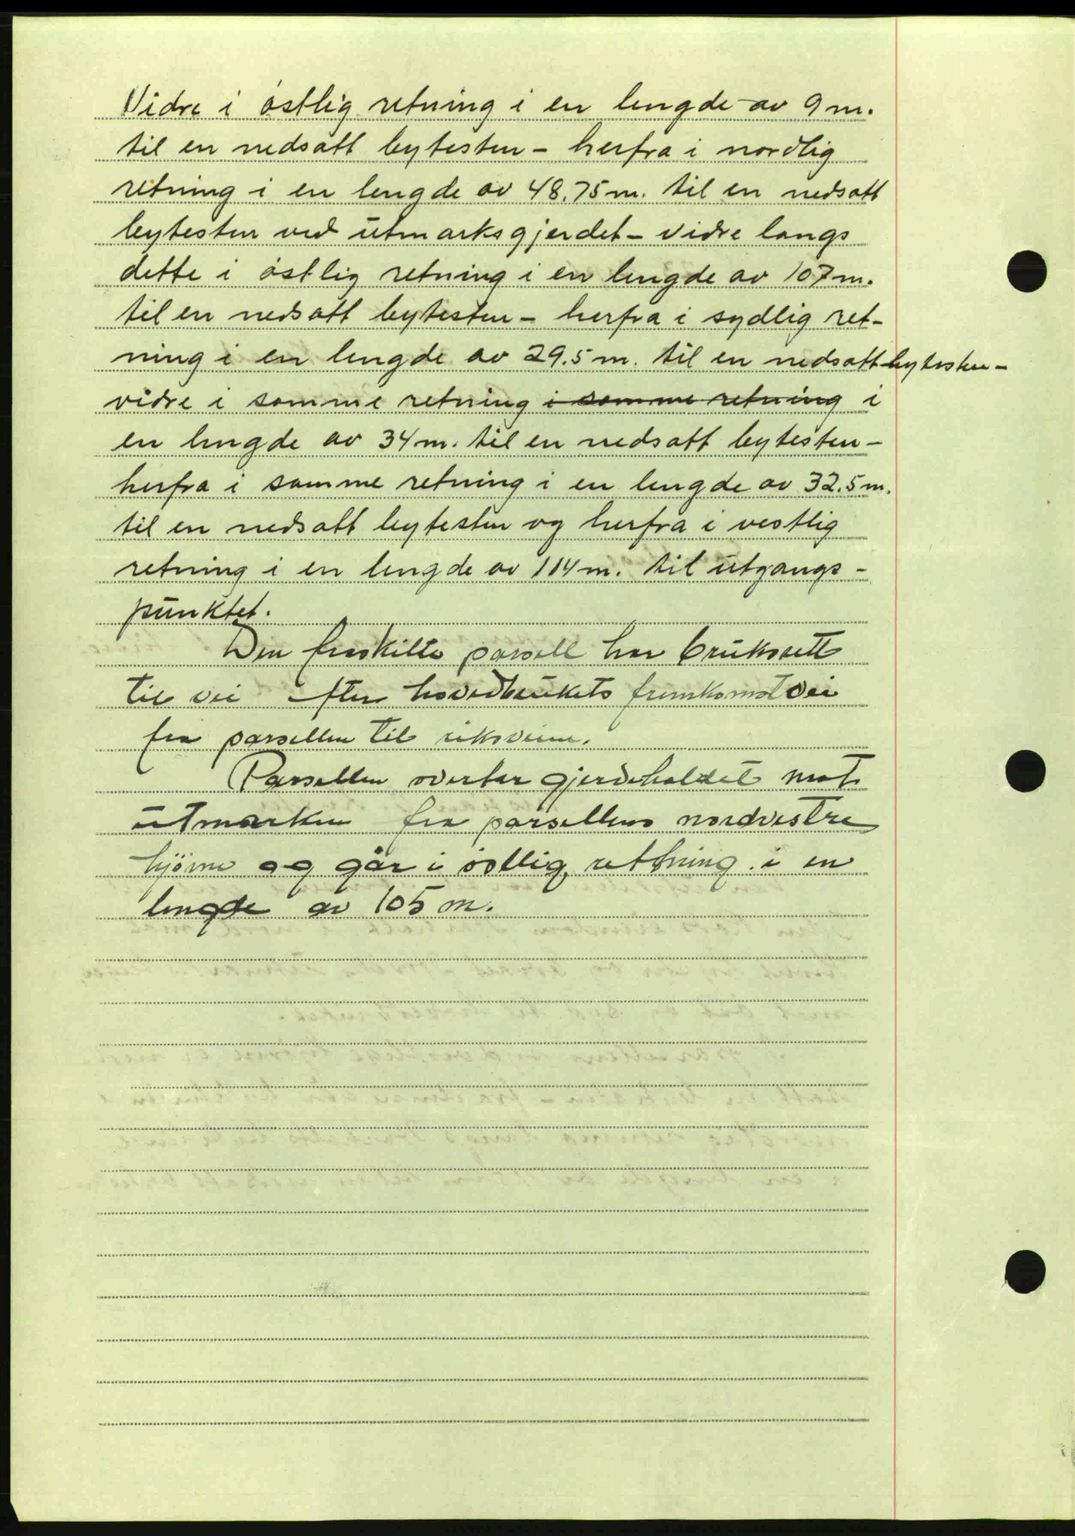 Vidre i östlig retning i en lengde av 9 m.
til en nedsatt bytesten – herfra i nordlig
retning i en lengde av 48,75 m. til en nedsatt
bytesten ved utmarksgjerdet – vidre langs
dette i östlig retning i en lengde av 107 m.
til en nedsatt bytesten – herfra i sydlig ret-
ning i en lengde av 29.5 m. til en nedsatt bytesten –
vidre i samme retning i samme retning i
en lengde av 34 m. til en nedsatt bytesten –
herfra i samme retning i en lengde av 32.5 m.
til en nedsatt bytesten og herfra i vestlig
retning i en lengde av 114 m. til utgangs-
punktet.
Den fraskilte parsell har bruksrett
til vei efter hovedbrukets fremkomstvei
fra parsellen til riksveien.
Parsellen overtar gjerdeholdet mot
utmarken fra parsellens nordvestre
hjörne og går i östlig retning i en
lengde av 105 m.